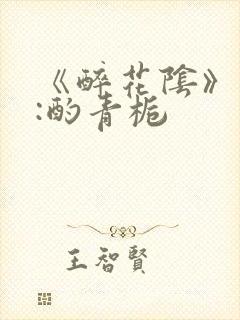 《醉花陰》
:酌青梔
王智賢